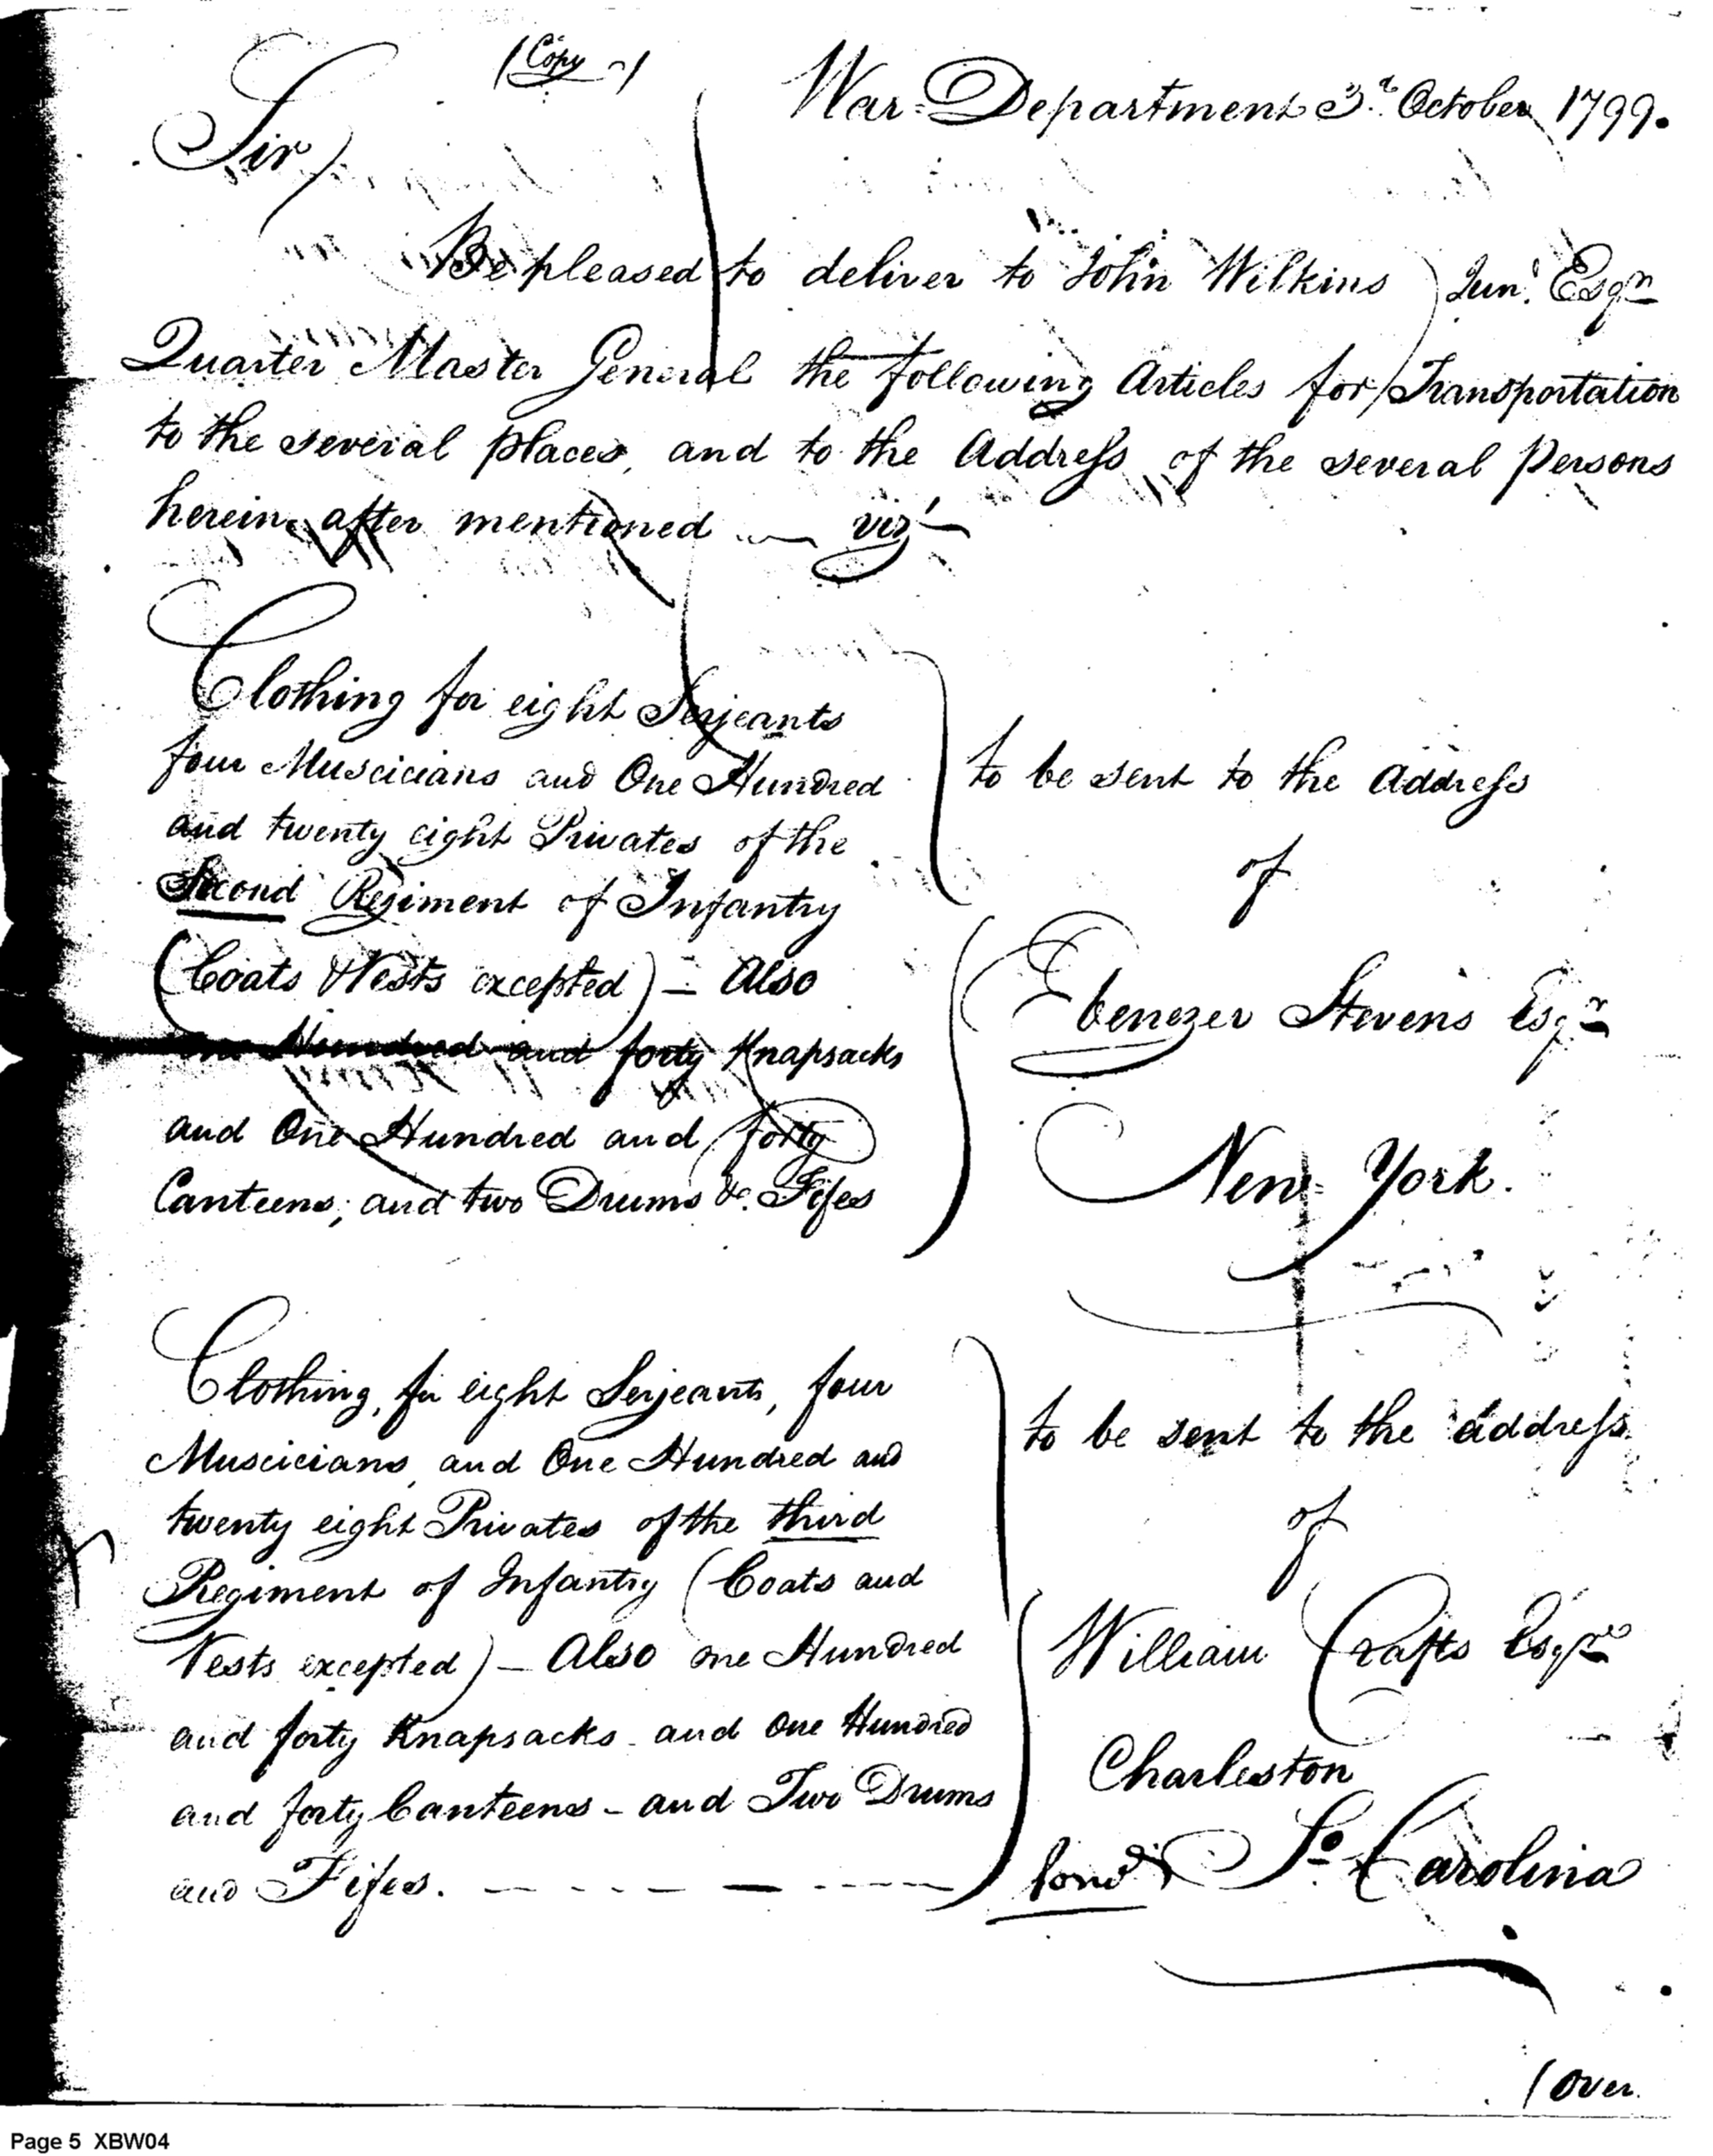 (Copy)
War-Department 3d. October 1799.
Sir
Be pleased to deliver to John Wilkins Junr. Esqr.
Quarter Master General the following Articles for Transportation
to the several places, and to the Address of the several Persons
herein after mentioned — vizt.
Clothing for eight Serjeants
four Muscicians and One Hundred
and twenty eight Privates of the
Second Regiment of Infantry
(Coats & Vests excepted) — Also
One Hundred and forty Knapsacks
and One Hundred and forty
Canteens; and two Drums & Fifes
to be sent to the address
of
Ebenezer Stevens Esqr.
New-York.
Clothing, for eight Serjeants, four
Muscicians, and One Hundred and
twenty eight Privates of the third
Regiment of Infantry (Coats and
Vests excepted) — Also one Hundred
and forty Knapsacks and One Hundred
and forty Canteens – and Two Drums
and Fifes.
to be sent to the address
of
William Crafts Esqre
Charleston
So. Carolina
(over.
Page 5 XBW04